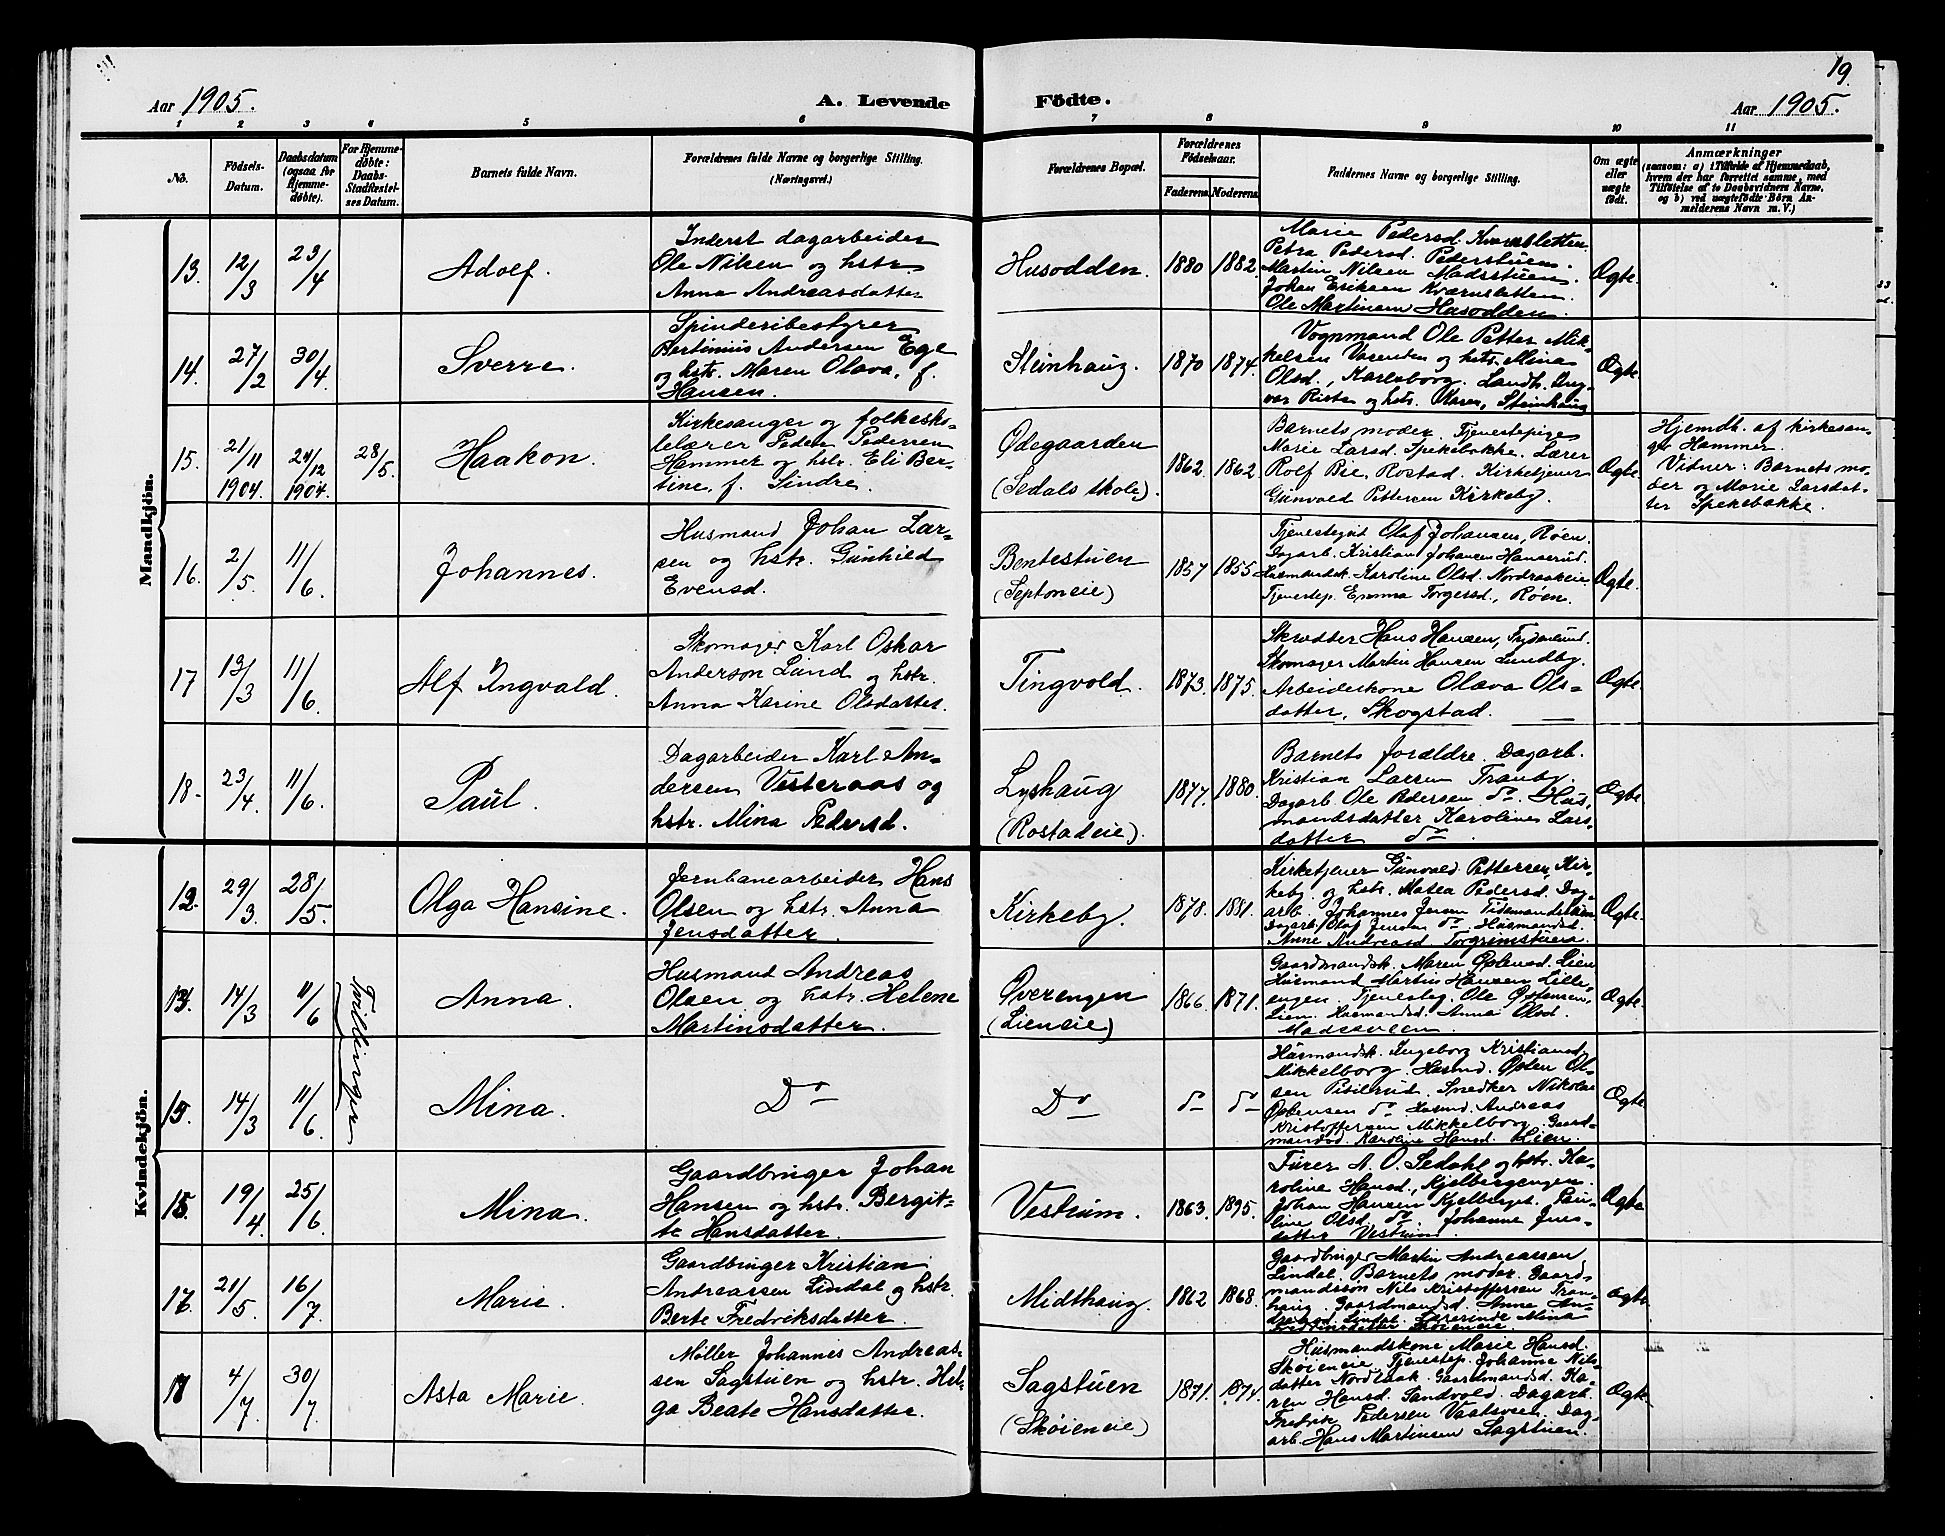 19.
Aar 1905.
A. Levende
Födte.
Aar 1905.
1 2 3 4 5 6 7 8 9 10 11
No.
Födsels-
Datum.
Daabsdatum
(ogsaa for
Hjemme-
døbte).
For Hjemme-
døbte:
Daabs-
Stadfæstel-
ses Datum.
Barnets fulde Navn.
Forældrenes fulde Navne og borgerlige Stilling.
(Næringsvei.)
Forældrenes Bopæl.
Forældrenes
Födselsaar.
Faderens
Moderens
Faddernes Navne og borgerlige Stilling.
Om ægte
eller
uægte
født.
Anmærkninger
(saasom: a) i Tilfælde af Hjemmedaab,
hvem der har forrettet samme, med
Tilføielse af to Daabsvidners Navne,
og b) ved uægtefödte Börn An-
melderens Navn m. V.)
Mandkjön.
13. 12/3 23/4
Adolf.
Inderst dagarbeider
Ole Nilsen og hstr.
Anna Andreasdatter
Husodden.
1880 1882.
Marie Pedersd. Kvernsletten.
Petra Pedersd. Pederstuen.
Martin Nilsen Madsstuen.
Johan Eriksen Kværnsletten.
Ole Martinsen Husodden.
Ægte.
14. 27/2 30/4
Sverre.
Spinderibestyrer
Bertinius Andersen Ege
og hstr. Maren Olava, f.
Hansen.
Steinhaug.
1870 1874.
Vognmand Ole Petter Mik-
kelsen og hstr. Mina
Olsd., Karlsborg. Landh.
og hstr. Olava, Steinhaug
Ægte.
15. 21/11 1904. 24/12 1904. 28/5.
Haakon.
Kirkesanger og folkesko-
lelærer Peder Pedersen
Hammer og hstr. Eli Ber-
tine, f. Sindre.
Ødegaarden
(Sedals skole).
1862 1862
Barnets moder. Tjenestepige
Marie Larsd. Spikebakke. Lærer
Rolf Bie, Rostad. Kirketjener
Gunvald Pettersen Kirkeby.
Ægte.
Hjemdb. af kirkesan-
ger Hammer.
Vidner: Barnets mo-
der og Marie Larsdat-
ter Spikebakke.
16. 2/5. 11/6.
Johannes.
Husmand Johan Lar-
sen og hstr. Gunhild
Evensd.
Bentestuen
(Septoneie)
1857 1855
Tjenestegut Olaf Johansen, Røen.
Dagarb. Kristian Johansen Hanserud.
Husmandsk. Karoline Olsd. Nordraakeie
Tjenestep. Emma Torgersd., Røen.
Ægte.
17 13/3 11/6.
Alf Ingvald.
Skomager Karl Oskar
Anderson Lund og hstr.
Anna Karine Olsdatter.
Tingvold.
1873. 1875.
Skrædder Hans Hansen,
Skomager Martin Hansen Lundby.
Arbeiderskone Olava Ols-
datter, Skogstad.
Ægte.
18- 23/4. 11/6.
Paul.
Dagarbeider Karl An-
dersen Vesteraas og
hstr. Mina Pedersd.
Lyshaug
(Rostadeie).
1877. 1880.
Barnets forældre. Dagarb.
Kristian Larsen Tranby.
Dagarb. Ole Pedersen do. Hus-
mandsdatter Karoline Lars-
datter do.
Ægte.
Kvindekjön.
12. 29/3. 28/5.
Olga Hansine.
Jernbanearbeider Hans
Olsen og hstr. Anna
Jensdatter.
Kirkeby.
1878. 1881.
Kirketjener Gunvald Pettersen, Kir-
keby og hstr. Matea Pedersd. Dag-
arb. Johannes Jensen
Dagarb. Olaf Jensen do. Husmandsd.
Anne Andreasd. Torgrimstuen.
Ægte.
14/3 11/6
Tvillinger
Anna.
Husmand Andreas
Olsen og hstr. Helene
Martinsdatter.
Øverengen
(Lieneie)
1866 1871.
Gaardmandsk. Maren Østensd. Lien
Husmand Martin Hansen Lille-
engen. Tjenesteg. Ole Østensen,
Lien. Husmandsd. Anna Olsd.
Ægte.
15. 14/3 11/6.
Mina.
Do
Do
do do
Husmandsk. Ingeborg Kristiansd.
Mikkelborg. Husmd. Østen Ol-
sen Pisilrud. Snedker Nikolai
Østensen do Husmd. Andreas
Kristoffersen Mikkelborg. Gaard-
mandsd. Karoline Hansd. Lien.
Ægte.
19/4 25/6
Mina.
Gaardbruger Johan
Hansen og hstr. Bergit-
te Hansdatter.
Vestrum.
1863. 1895.
Furer A. O. Sedahl og hstr. Ka-
roline Hansd., Kjelbergengen.
Johan Hansen Kjelberget. Pau-
line Olsd. do. Johanne Jens-
datter Vestrum.
Ægte
17. 21/5. 16/7
Marie.
Gaardbruger Kristian
Andreassen Lindal og hstr.
Berte Fredriksdatter.
Midthaug.
1862 1868.
Gaardbruger Martin Andreassen
Lindal. Barnets moder. Gaard-
mandssøn Nils Kristoffersen Tran-
haug. Gaardmandsd. Anna An-
dreasd. Lindal. Lærerinde Mina
Ægte
4/7. 30/7.
Asta Marie.
Møller Johannes Andreas-
sen Sagstuen og hstr. Hel-
ga Beate Hansdatter.
Sagstuen
(Skøieneie)
1871. 1874.
Husmandskone Marie Hansd.
Skøieneie. Tjenestep. Johanne Nils-
datter Gaardmandsd. Ka-
ren Hansd. Sandvold. Dagarb.
Fredrik Pedersen Dag-
arb. Hans Martinsen Sagstuen.
Ægte.